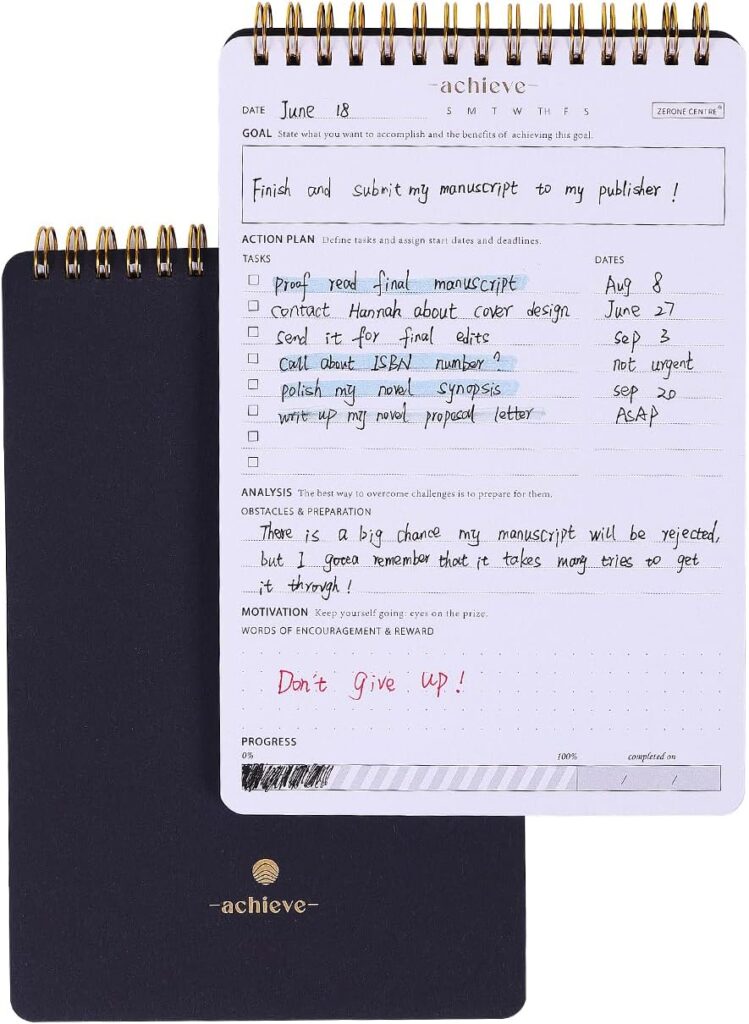 -achieve-
DATE June 18 S M T W TH F S ZERONE CENTRE®
GOAL State what you want to accomplish and the benefits of achieving this goal.
Finish and submit my manuscript to my publisher !
ACTION PLAN Define tasks and assign start dates and deadlines.
TASKS DATES
proof read final manuscript Aug 8
contact Hannah about cover design June 27
send it for final edits sep 3
call about ISBN number? not urgent
polish my novel synopsis sep 20
writ up my novel proposal letter ASAP
ANALYSIS The best way to overcome challenges is to prepare for them.
OBSTACLES & PREPARATION
There is a big chance my manuscript will be rejected,
but I gotta remember that it takes many tries to get
it through!
MOTIVATION Keep yourself going: eyes on the prize.
WORDS OF ENCOURAGEMENT & REWARD
Don't give up!
PROGRESS
0% 100% completed on
/ /
-achieve-